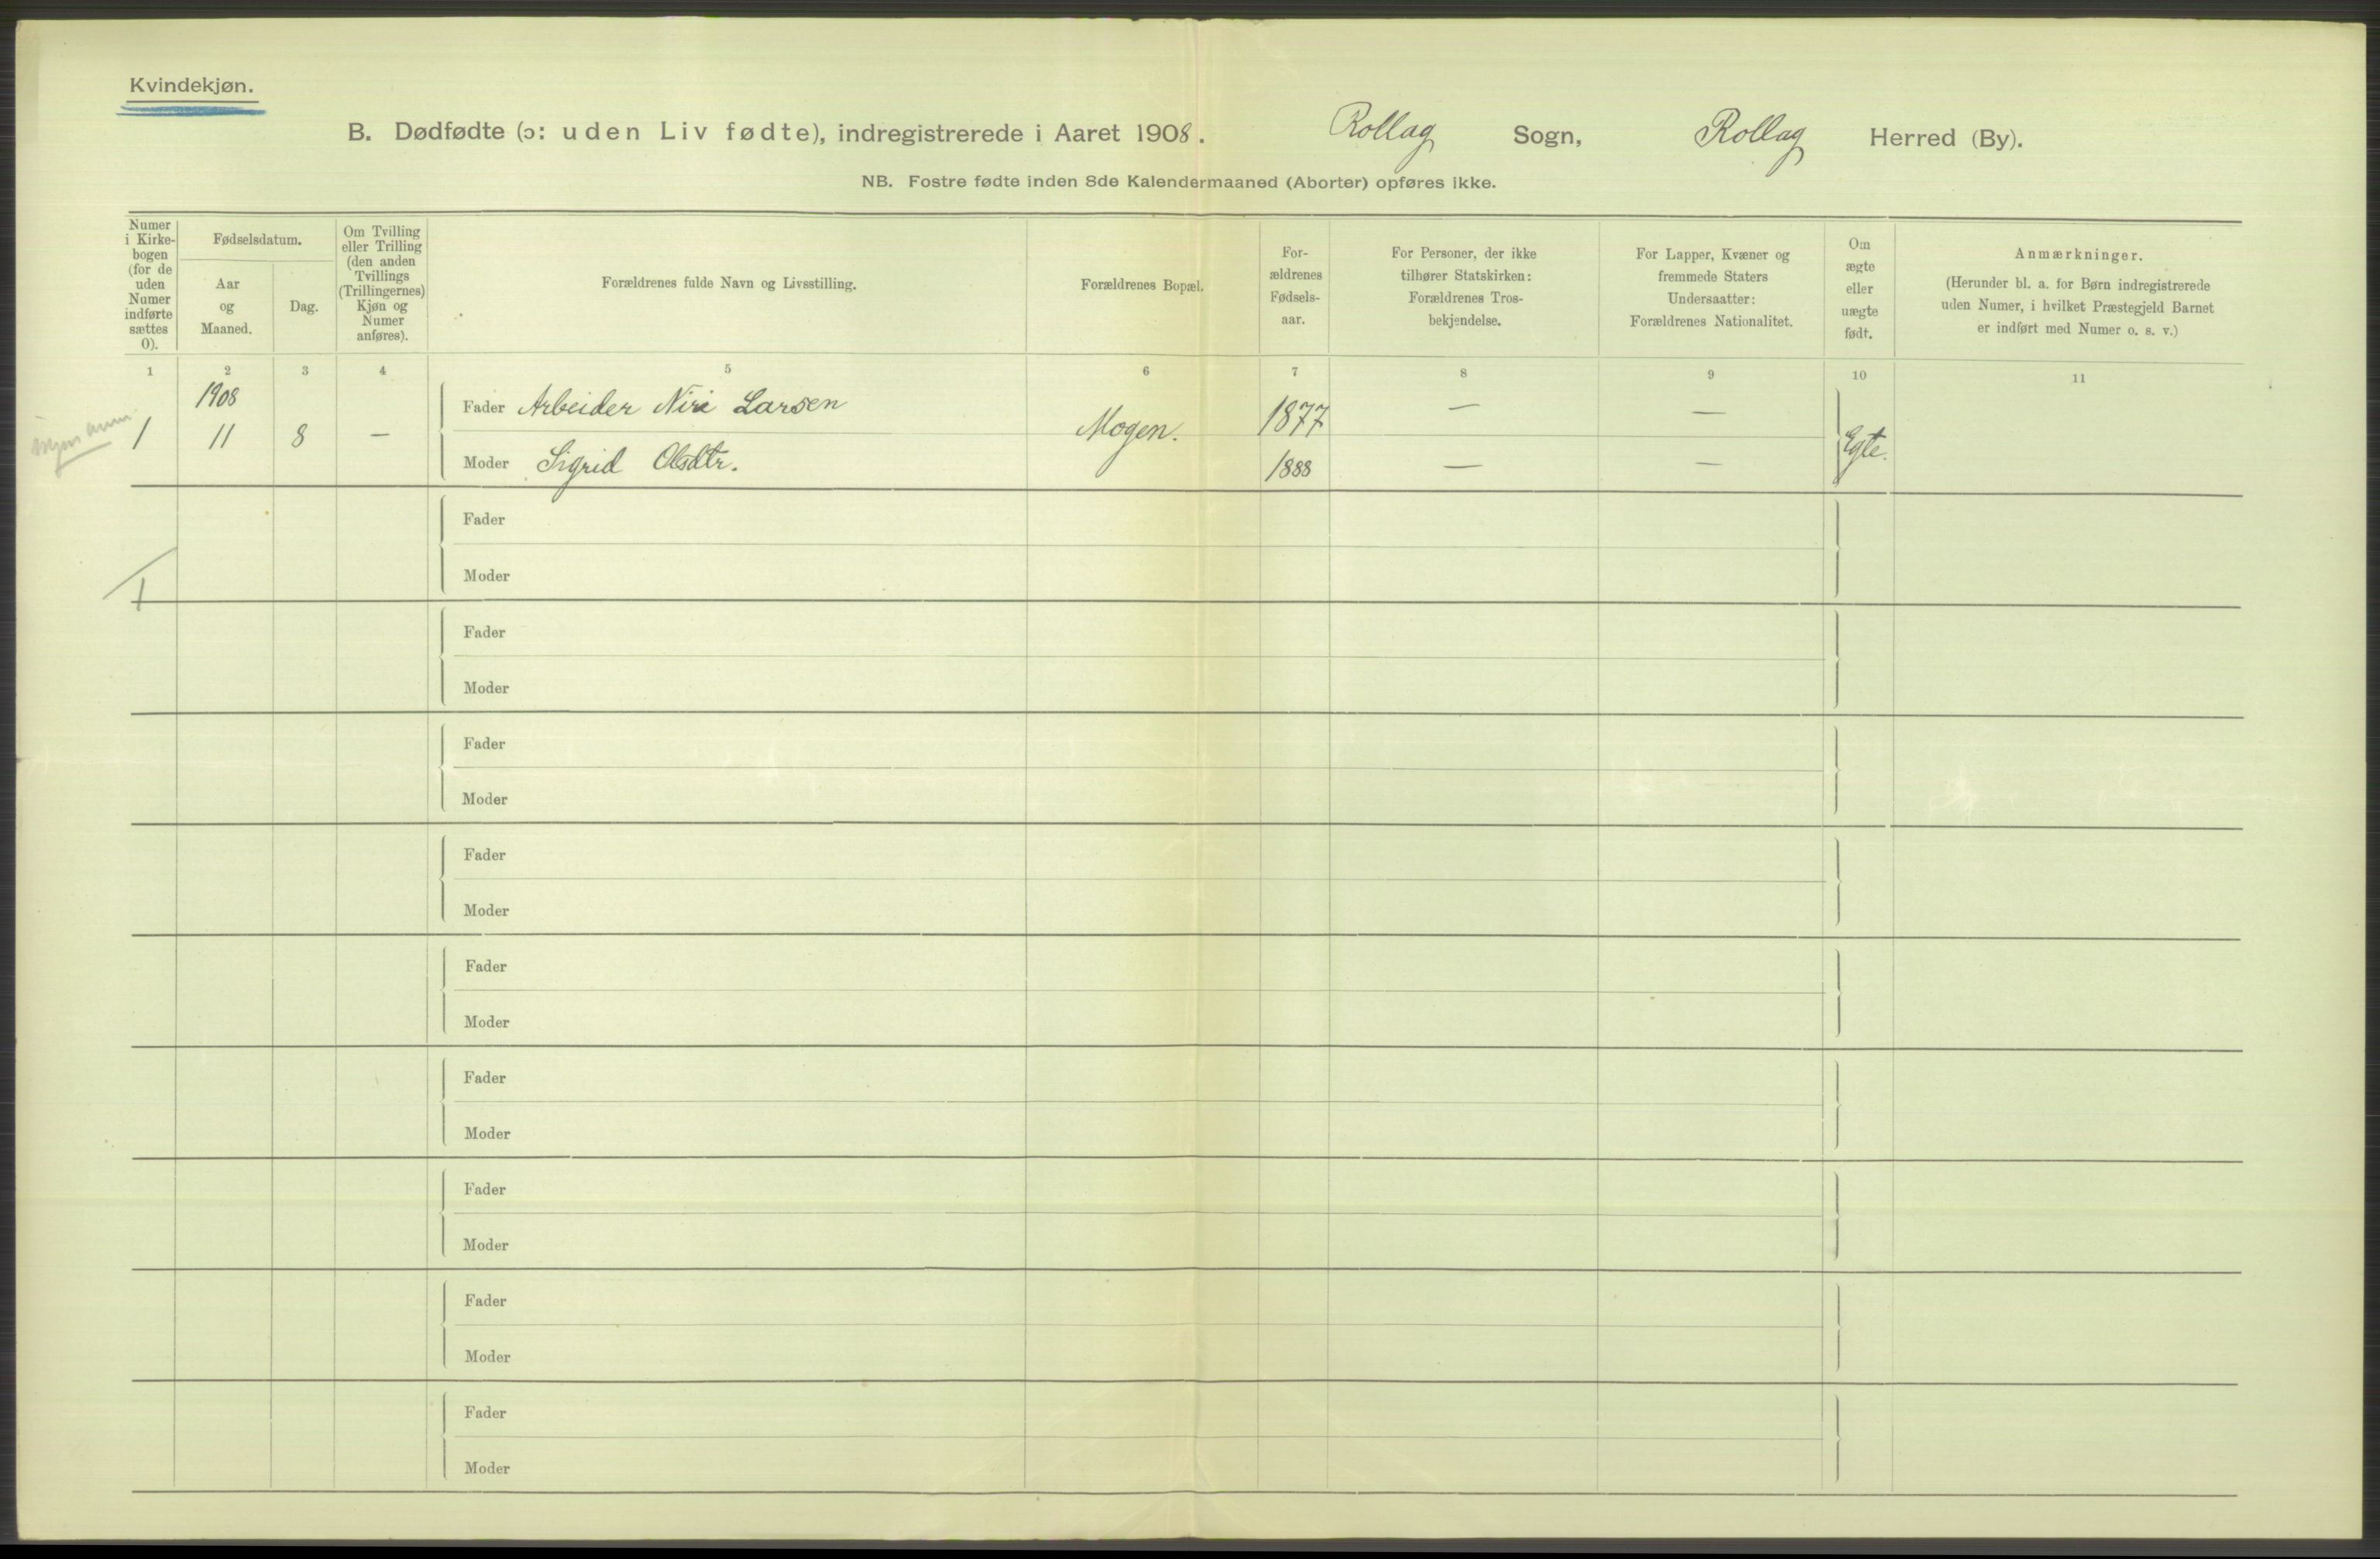 Kvindekjøn.
B. Dødfødte (ɔ: uden Liv fødte), indregistrerede i Aaret 1908. Rollag Sogn, Rollag Herred (By).
NB. Fostre fødte inden 8de Kalendermaaned (Aborter) opføres ikke.
Numer
i Kirke-
bogen
(for de
uden
Numer
indførte
sættes
0).
Fødselsdatum.
Aar
og
Maaned.
Dag.
Om Tvilling
eller Trilling
(den anden
Tvillings
(Trillingernes)
Kjøn og
Numer
anføres).
Forældrenes fulde Navn og Livsstilling.
Forældrenes Bopæl.
For-
ældrenes
Fødsels-
aar.
For Personer, der ikke
tilhører Statskirken:
Forældrenes Tros-
bekjendelse.
For Lapper, Kvæner og
fremmede Staters
Undersaatter:
Forældrenes Nationalitet.
Om
ægte
eller
uægte
født.
Anmærkninger.
(Herunder bl. a. for Børn indregistrerede
uden Numer, i hvilket Præstegjeld Barnet
er indført med Numer o. s. v.)
1 2 3 4 5 6 7 8 9 10 11
1908
Fader Arbeider Niri Larsen 1877 — —
1 11 8 — Mogen. Egte.
Moder Sigrid Olsdtr. 1888 — —
Fader
Moder
1
Fader
Moder
Fader
Moder
Fader
Moder
Fader
Moder
Fader
Moder
Fader
Moder
Fader
Moder
Fader
Moder